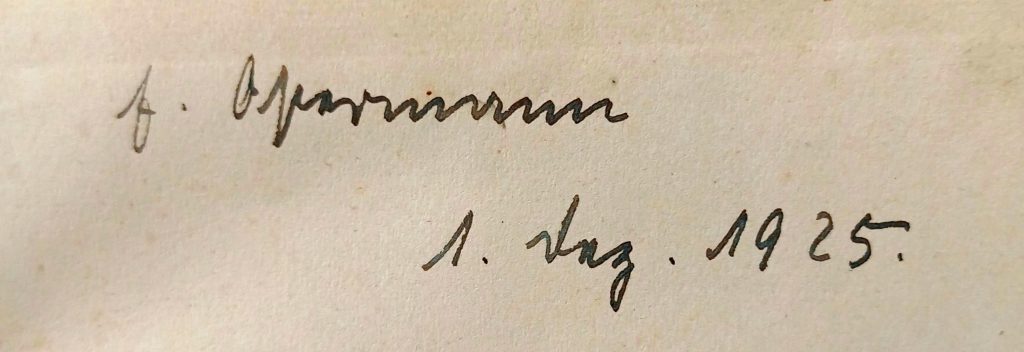 f. Opermann
1. Dez. 1925.